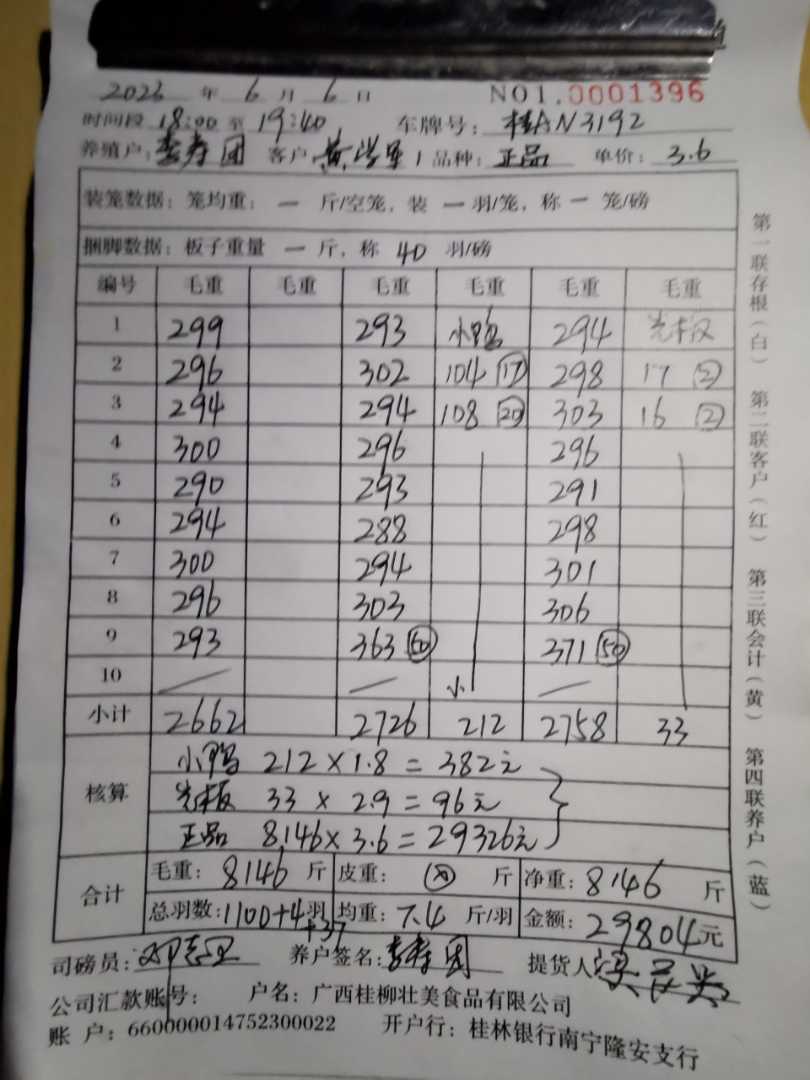 单
2023 年 6 月 6 日 NO1.0001396
时间段 18:00 至 19:40 车牌号: 桂AN3192
养殖户: 李寿团 客户 黄 品种: 正品 单价: 3.6
装笼数据: 笼均重: 一 斤/空笼, 装 一 羽/笼, 称 一 笼/磅
捆脚数据: 板子重量 一 斤, 称 40 羽/磅
编号 毛重 毛重 毛重 毛重 毛重 毛重
1 299 293 小鸭 294 光板
2 296 302 104 (17) 298 17 (2)
3 294 294 108 (20) 303 16 (2)
4 300 296 296
5 290 293 291
6 294 288 298
7 300 294 301
8 296 303 306
9 293 363 (50) 371 (50)
10 — — 小 —
小计 2662 2726 212 2758 33
核算
小鸭 212 × 1.8 = 382元
光板 33 × 2.9 = 96元
正品 8146 × 3.6 = 29326元
合计
毛重: 8146 斤 皮重: 斤 净重: 8146 斤
总羽数: 1100+4羽 +37 均重: 7.4 斤/羽 金额: 29804元
司磅员: 邓 养户签名: 李寿团 提货人:
公司汇款账号: 户名: 广西桂柳壮美食品有限公司
账 户: 660000014752300022 开户行: 桂林银行南宁隆安支行
第一联存根(白) 第二联客户(红) 第三联会计(黄) 第四联养户(蓝)